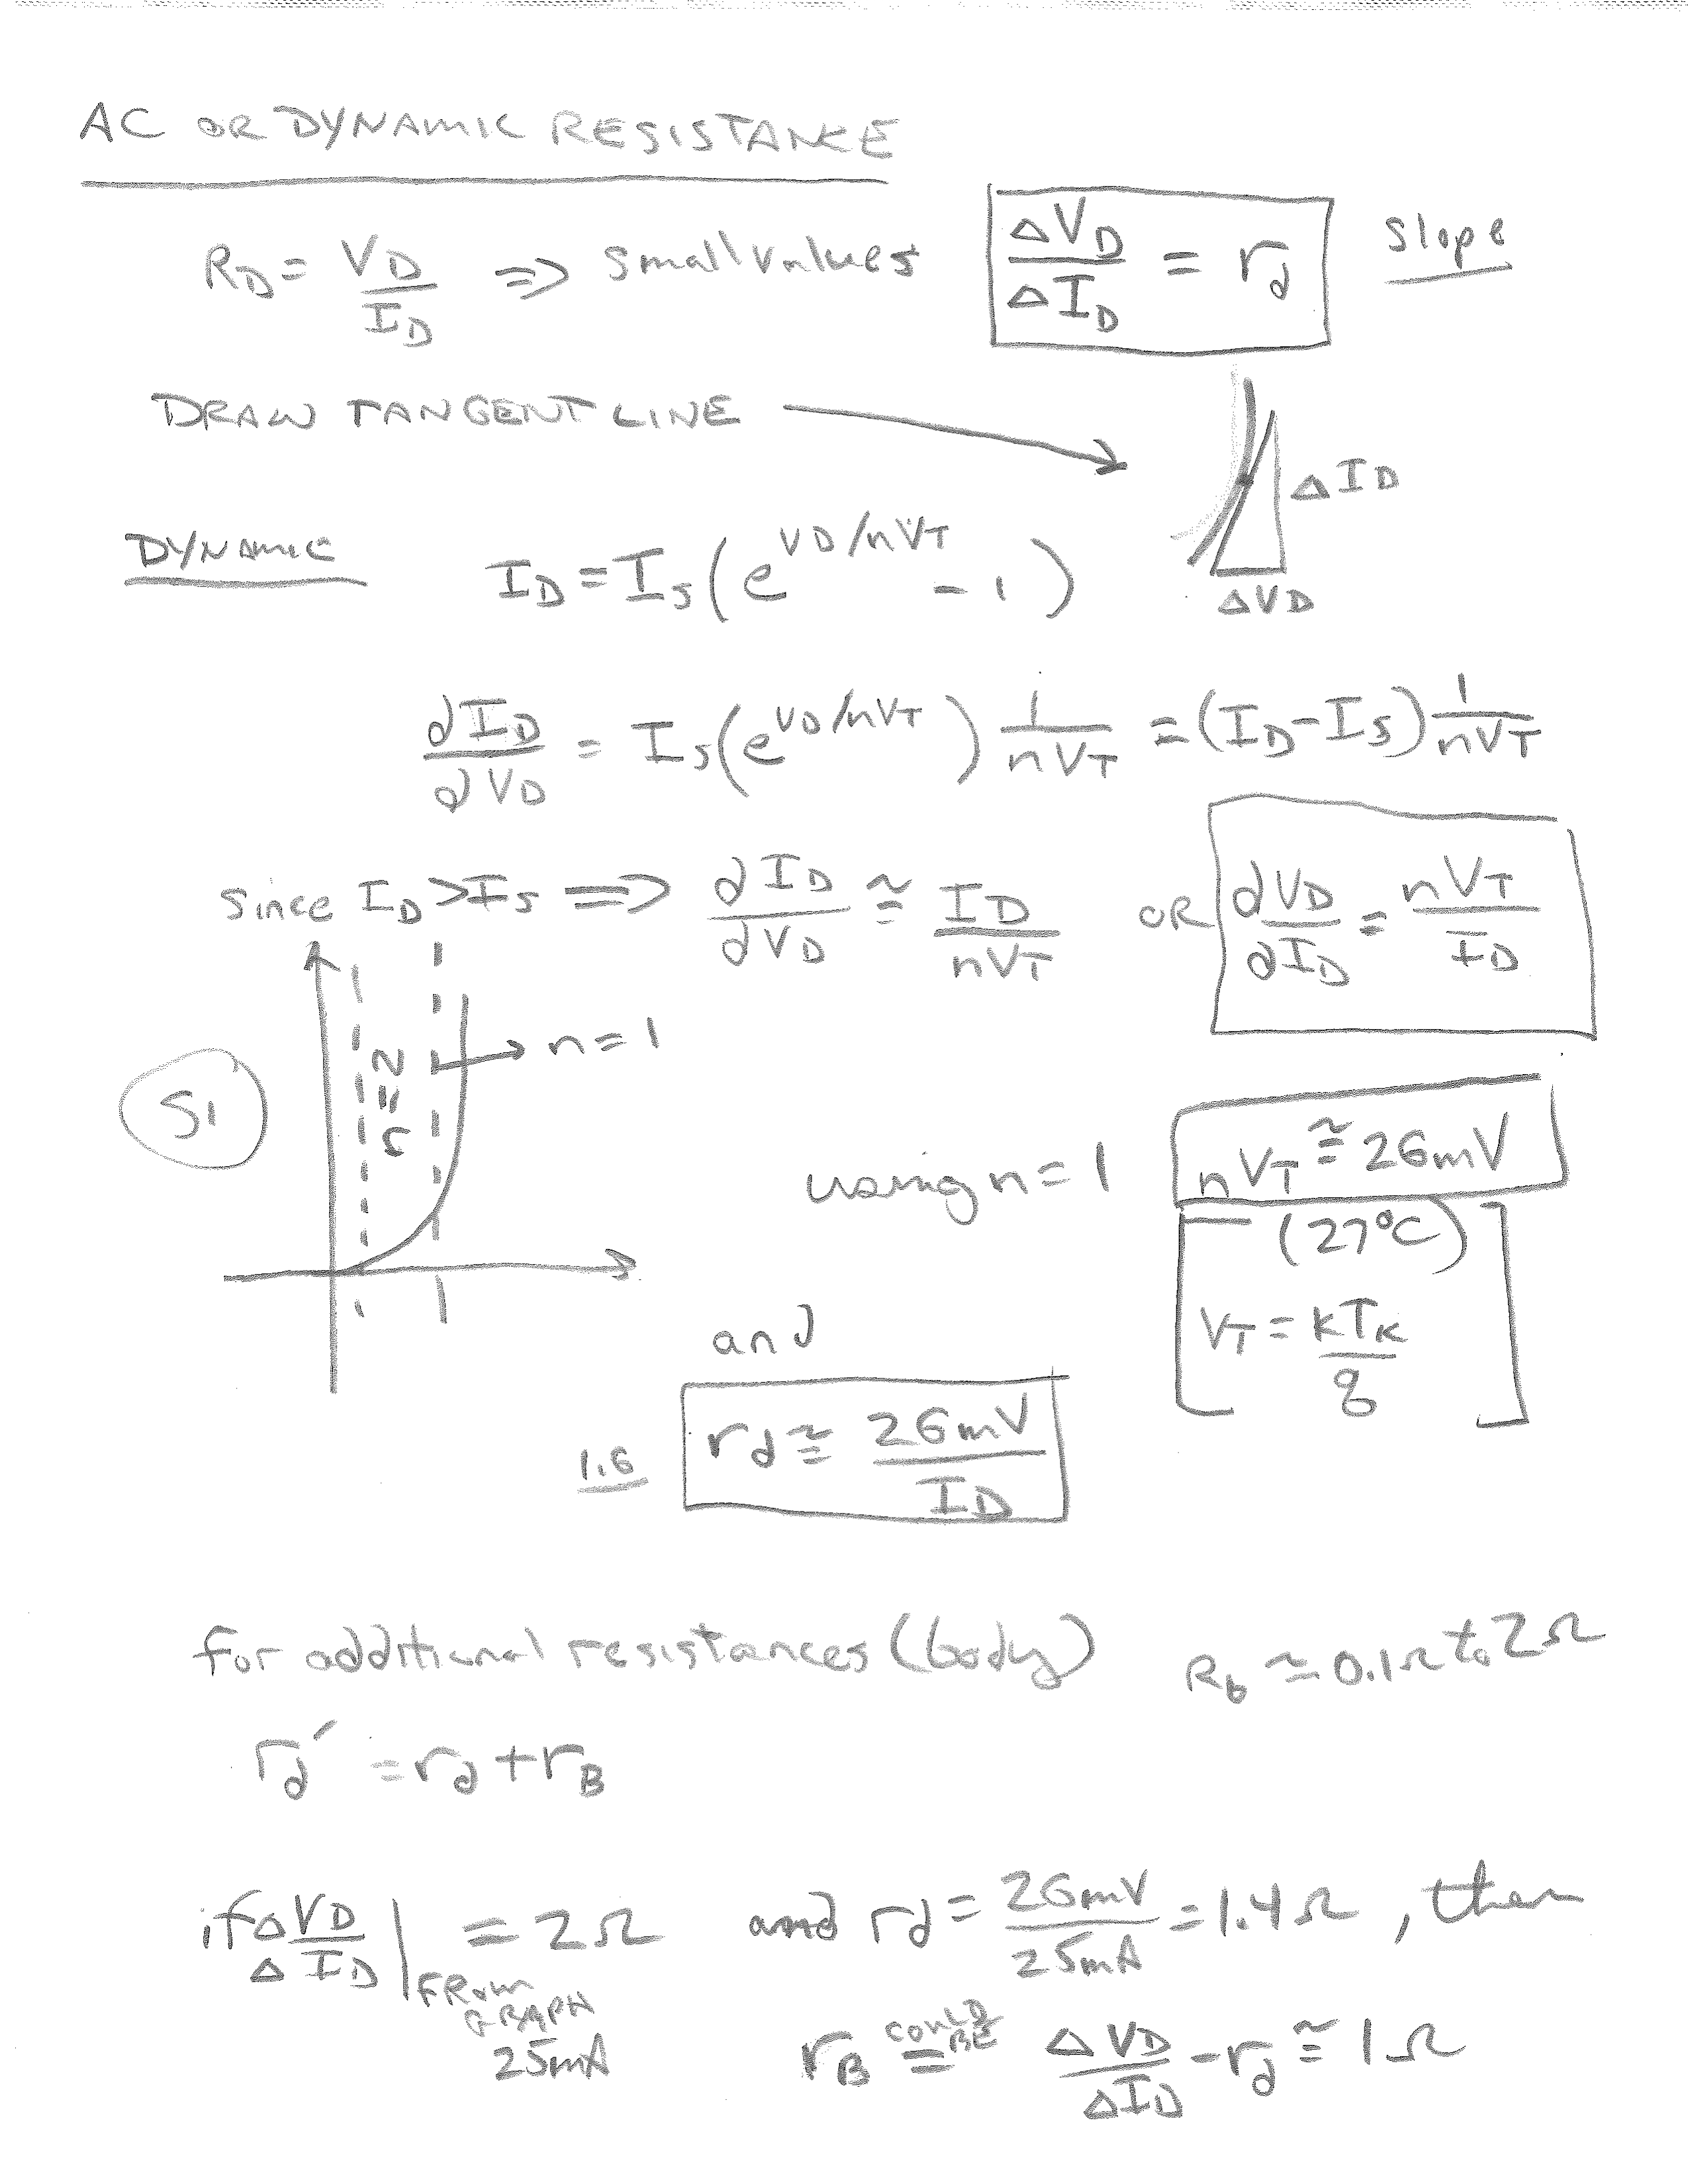 AC OR DYNAMIC RESISTANCE
R_D = V_D / I_D ⇒ small values ΔV_D / ΔI_D = r_d slope
DRAW TANGENT LINE
ΔI_D
ΔV_D
DYNAMIC I_D = I_s (e^{V_D/nV_T} - 1)
∂I_D / ∂V_D = I_s (e^{V_D/nV_T}) 1 / nV_T = (I_D - I_s) 1 / nV_T
since I_D > I_s ⇒ ∂I_D / ∂V_D ≅ I_D / nV_T OR ∂V_D / ∂I_D = nV_T / I_D
n=2
n=1
Si
using n=1 nV_T ≅ 26mV
(27°C)
V_T = kT_K / q
and
1.6 r_d ≅ 26mV / I_D
for additional resistances (body) R_b ≃ 0.1Ω to 2Ω
r_d′ = r_d + r_B
if ΔV_D / ΔI_D | = 2Ω and r_d = 26mV / 25mA = 1.4Ω, then
FROM
GRAPH
25mA
r_B = COULD BE ΔV_D / ΔI_D - r_d ≅ 1Ω